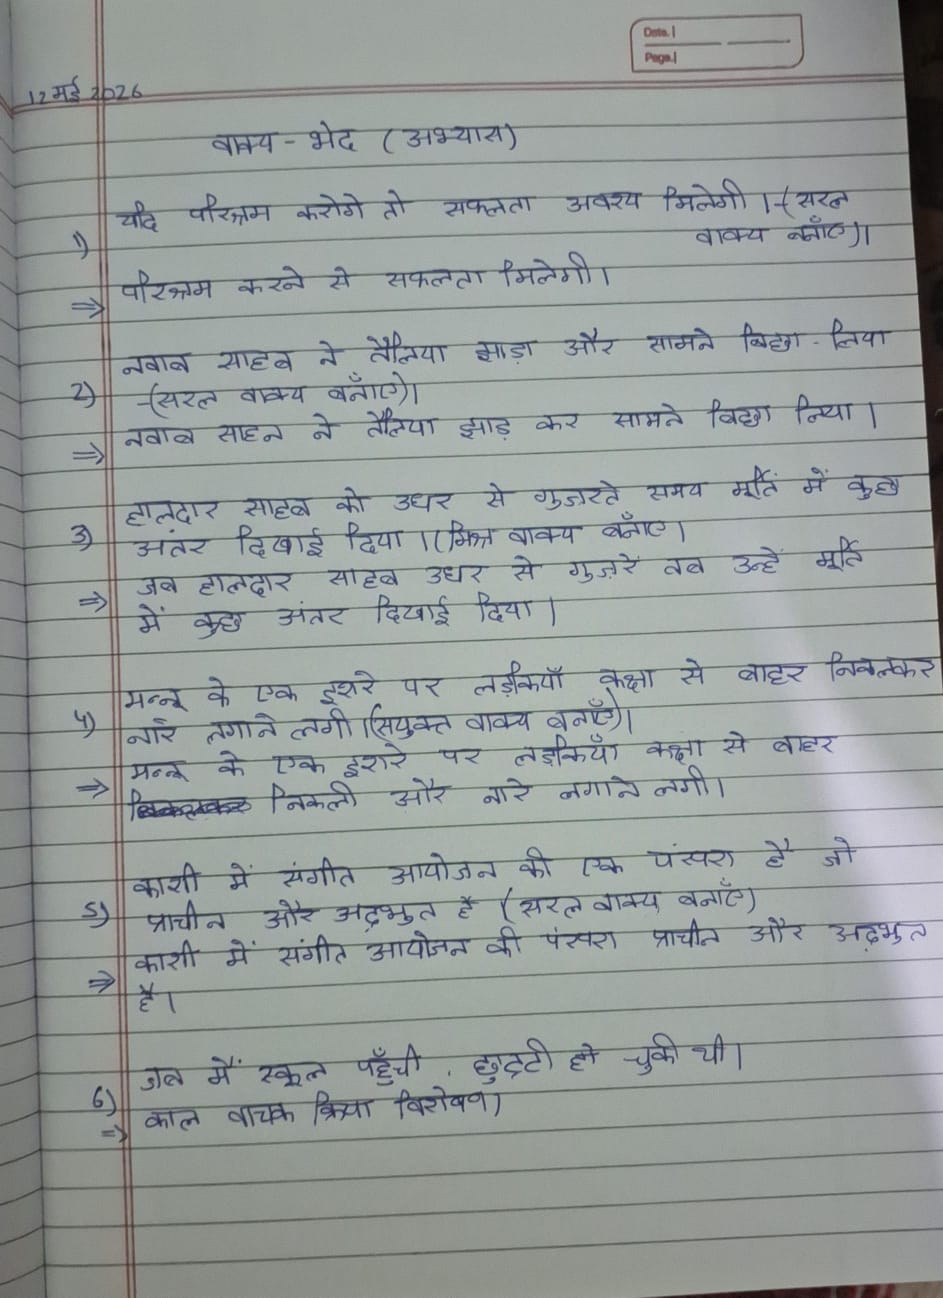 Date.
Page.
12 मई 2026
वाक्य - भेद (अभ्यास)
यदि परिश्रम करोगे तो सफलता अवश्य मिलेगी। -(सरल
1) वाक्य बनाँए)।
⇒ परिश्रम करने से सफलता मिलेगी।
नवाब साहब ने तौलिया झाड़ा और सामने बिछा - लिया
2) -(सरल वाक्य बनाँए)।
⇒ नवाब साहब ने तौलिया झाड़ कर सामने बिछा लिया।
हालदार साहब को उधर से गुजरते समय मूर्ति में कुछ
3) अंतर दिखाई दिया। (मिश्र वाक्य बनाँए।
⇒ जब हालदार साहब उधर से गुज़रें तब उन्हें मूर्ति
में कुछ अंतर दिखाई दिया।
मन्नू के एक इशारे पर लड़कियाँ कक्षा से बाहर निकलकर
4) नारे लगाने लगी। (संयुक्त वाक्य बनाएँ)।
⇒ मन्नू के एक इशारे पर लड़कियाँ कक्षा से बाहर
निकली और नारे लगाने लगी।
काशी में संगीत आयोजन की एक पंरपरा है जो
5) प्राचीन और अद्भुत है (सरल वाक्य बनाँए)
⇒ काशी में संगीत आयोजन की पंरपरा प्राचीन और अद्भुत
है।
जब मैं स्कूल पहुँची, छुट्टी हो चुकी थी।
6)
⇒ काल वाचक क्रिया विशेषण)